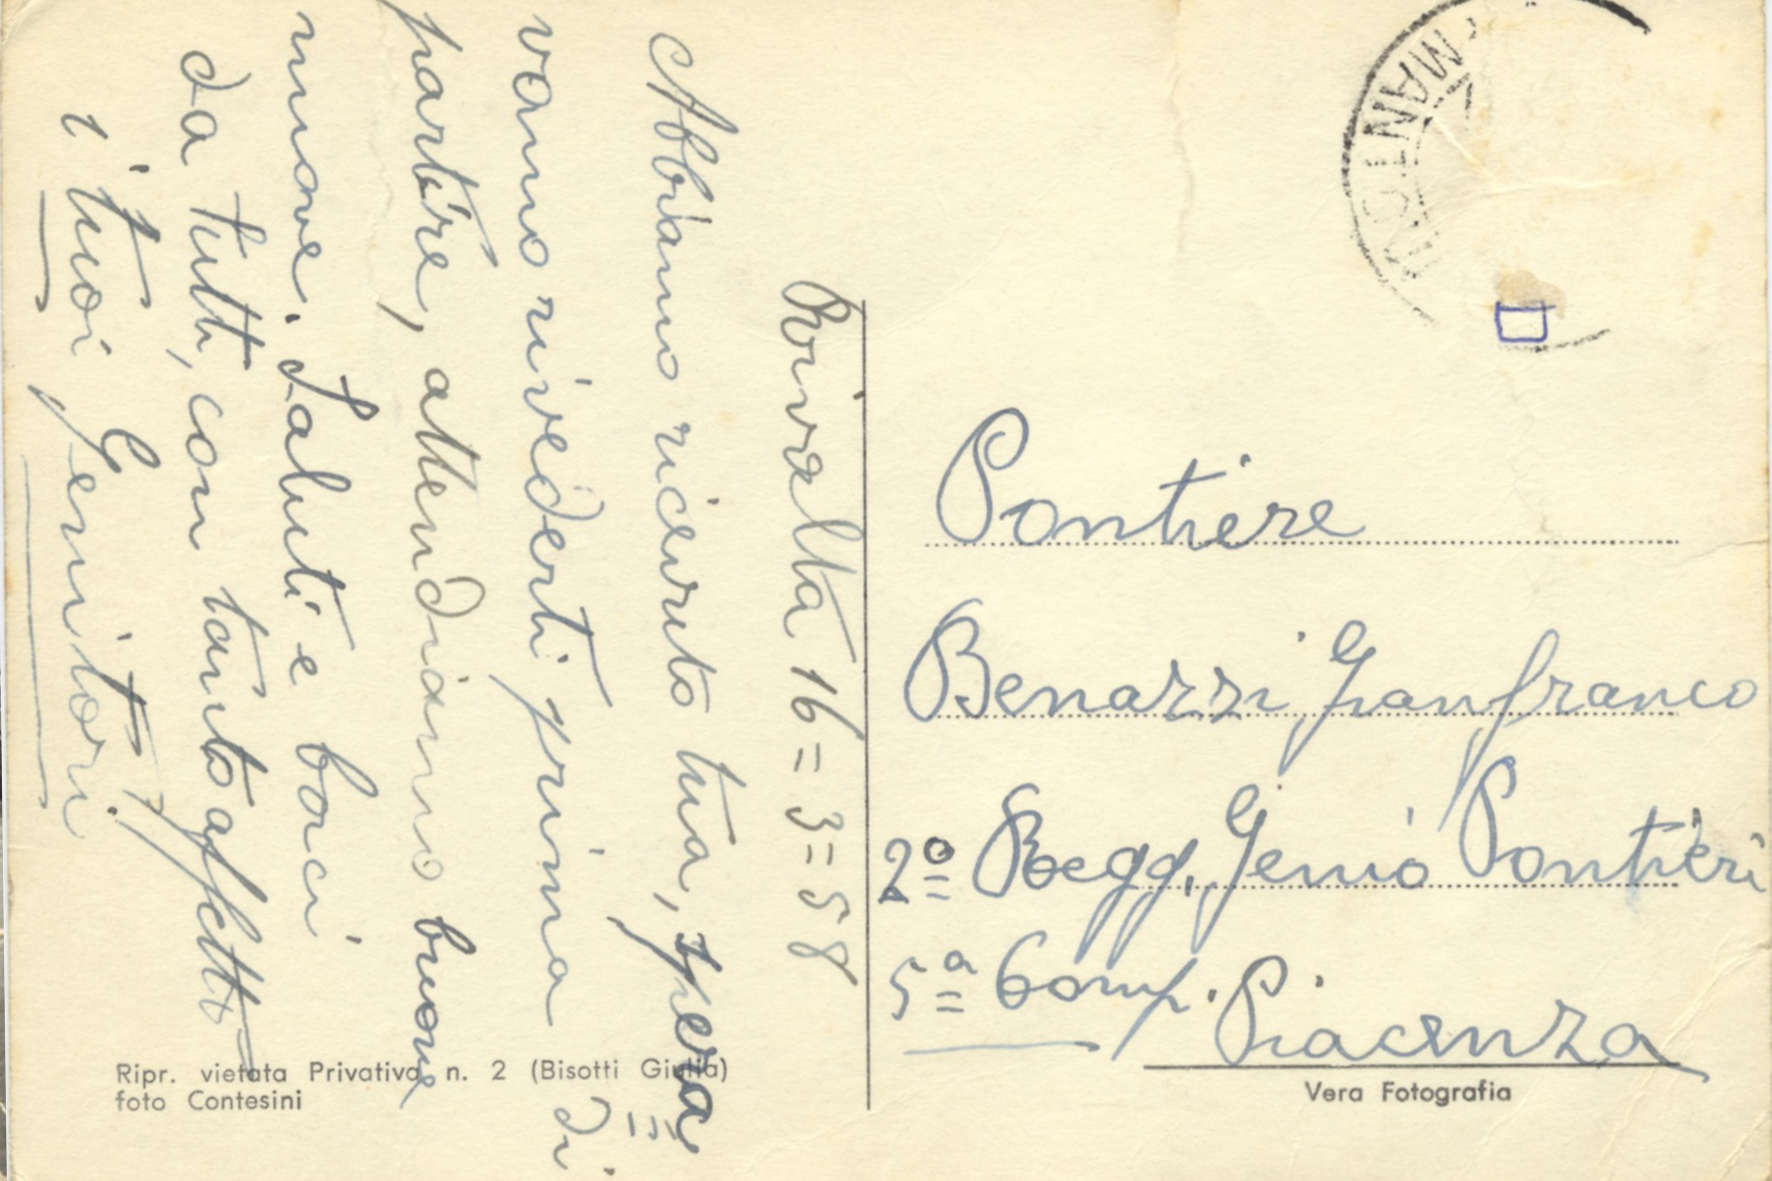 Rivalta 16=3=58
Abbiamo ricevuto tua, spera=
vamo rivederti prima di
partire, attendiamo buone
nuove. Saluti e baci
da tutti, con tanto affetto
i tuoi Genitori
MANTOVA
Pontiere
Benazzi Gianfranco
2º Regg. Genio Pontieri
5ª Comp. Piacenza
Ripr. vietata Privativa n. 2 (Bisotti Giulia)
foto Contesini
Vera Fotografia